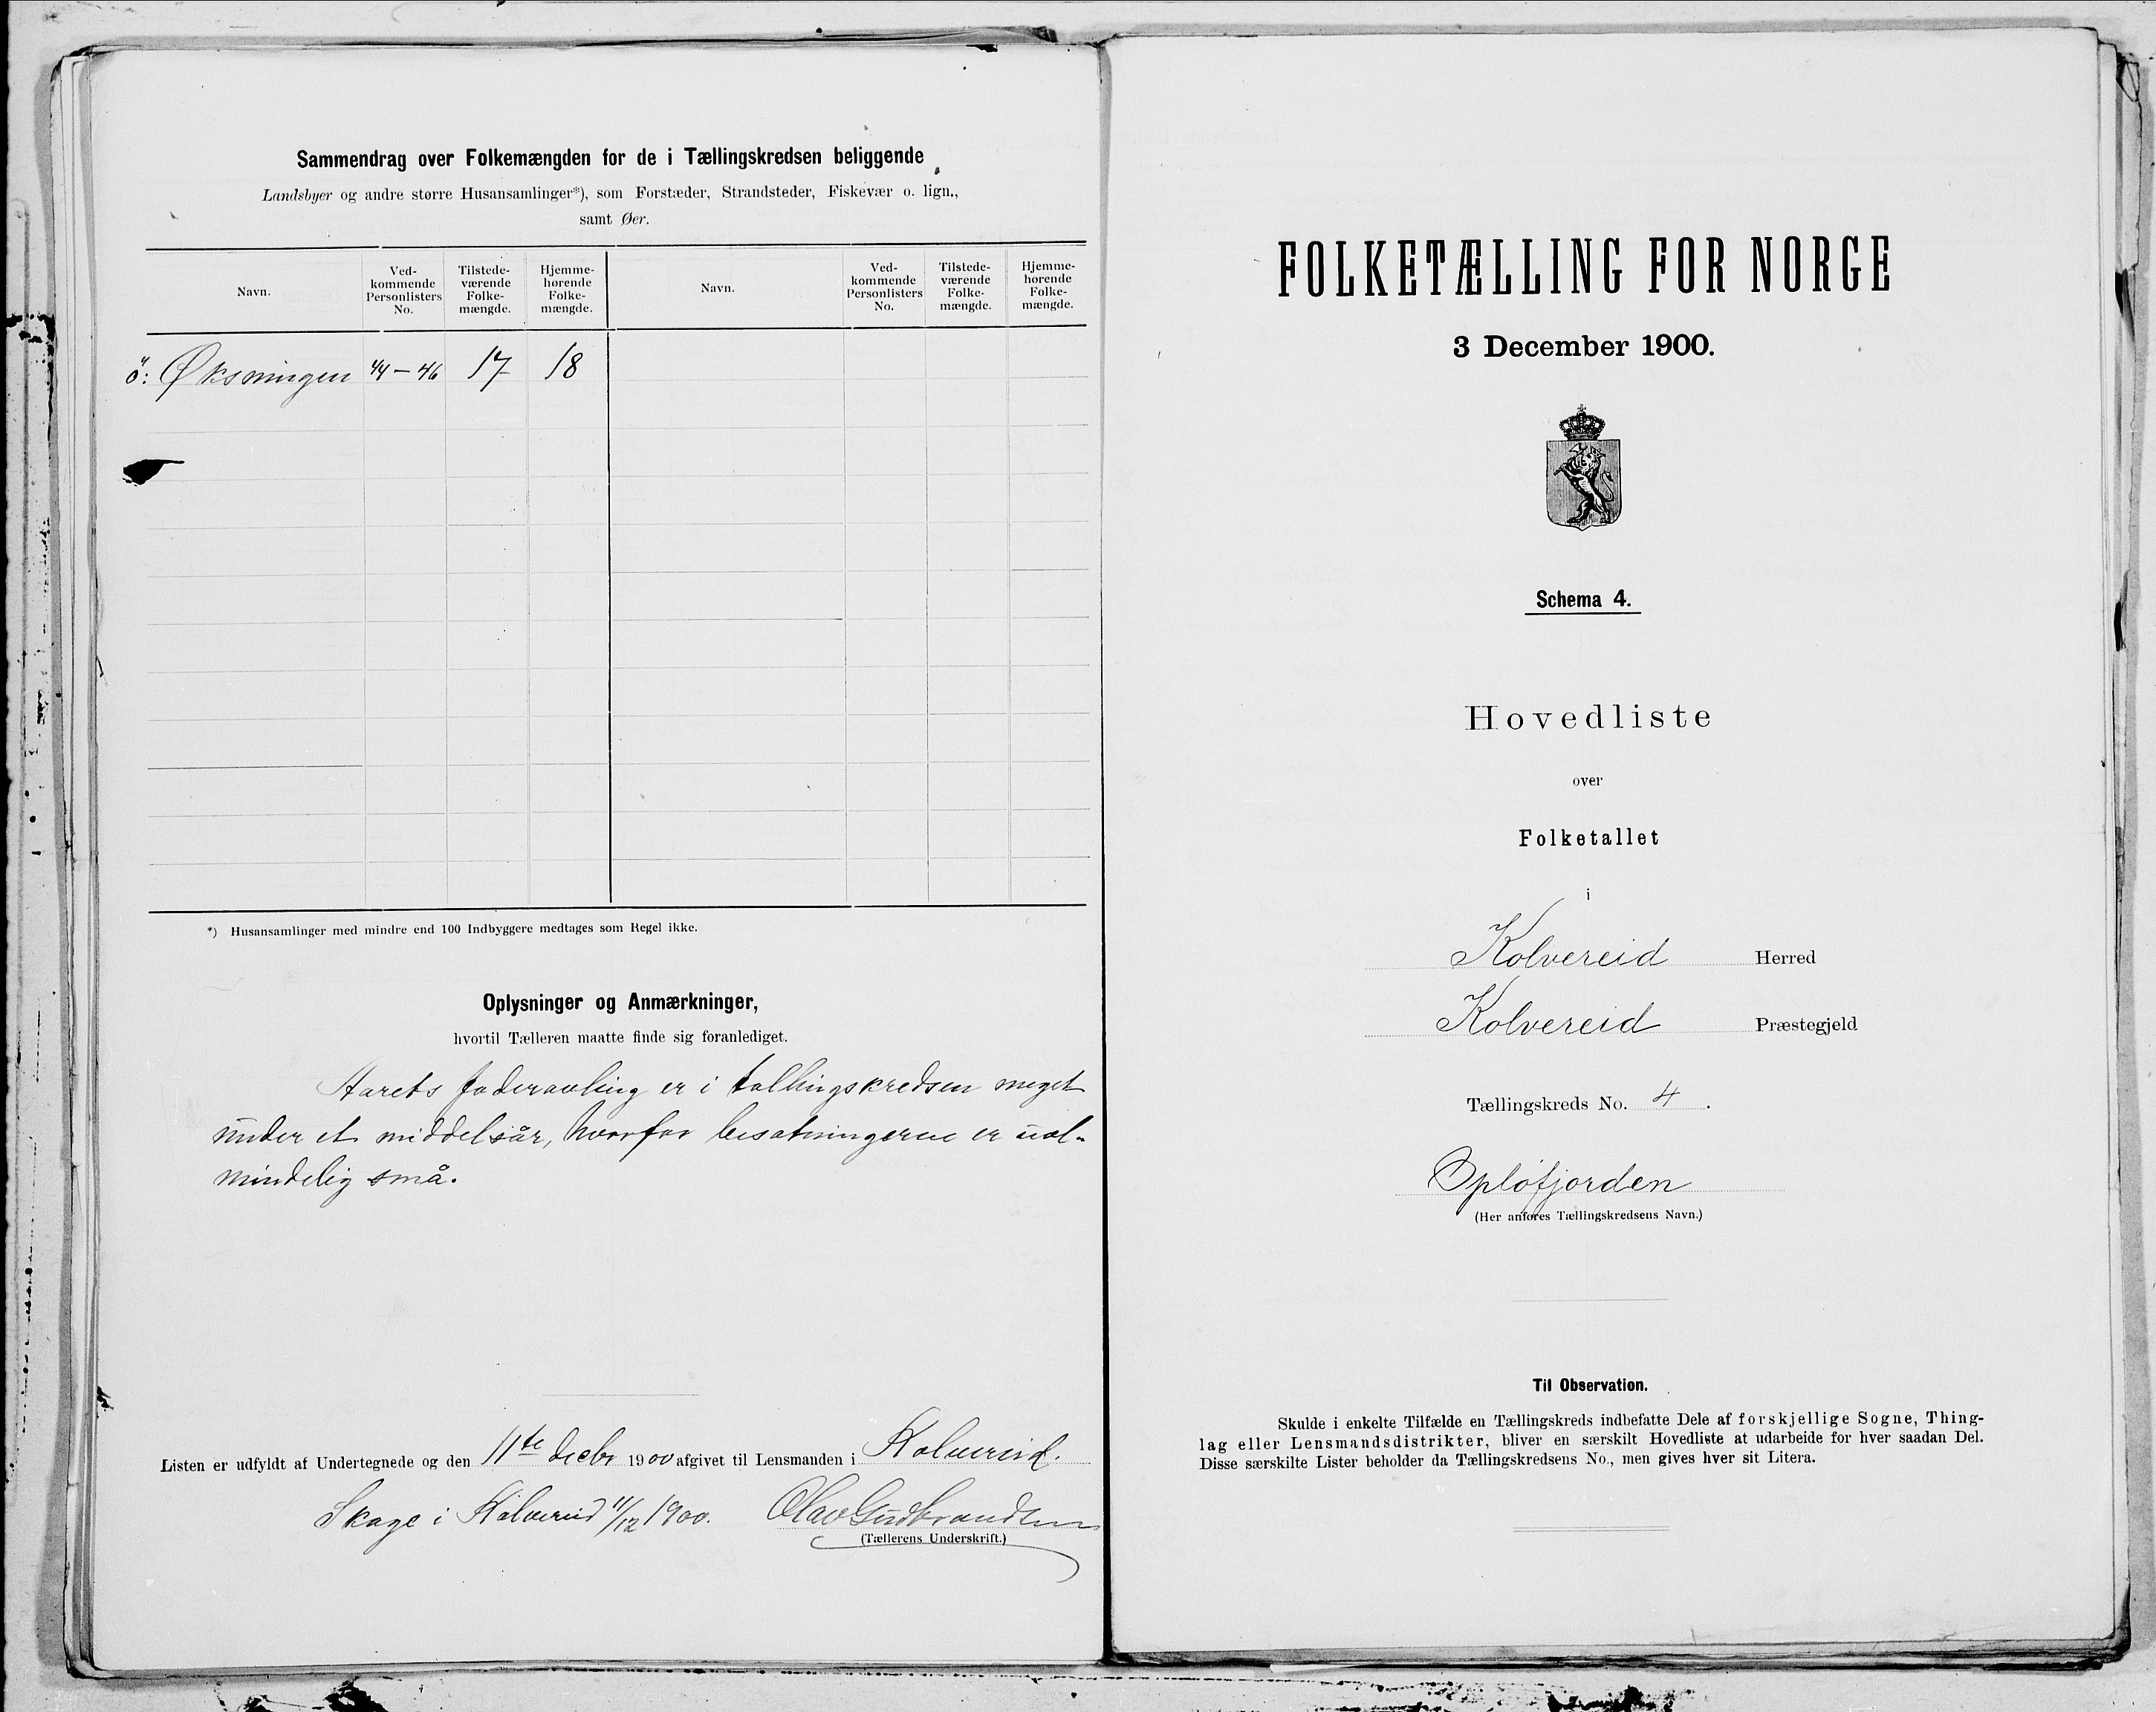 Sammendrag over Folkemængden for de i Tællingskredsen beliggende
Landsbyer og andre større Husansamlinger*), som Forstæder, Strandsteder, Fiskevær o. lign.,
samt Øer.
Navn. Ved-kommende Personlisters No. Tilstede-værende Folke-mængde. Hjemme-hørende Folke-mængde. Navn. Ved-kommende Personlisters No. Tilstede-værende Folke-mængde. Hjemme-hørende Folke-mængde.
ö: Øksningen 44-46 17 18
*) Husansamlinger med mindre end 100 Indbyggere medtages som Regel ikke.
Oplysninger og Anmærkninger,
hvortil Tælleren maatte finde sig foranlediget.
Aarets foderavling er i tællingskredsen meget
under et middelsår, hvorfor besætningerne er ual-
mindelig små.
Listen er udfyldt af Undertegnede og den 11te decbr 1900 afgivet til Lensmanden i Kolvereid.
Skage i Kolvereid 11/12 1900. Olav Gudbrandsen
(Tællerens Underskrift.)
FOLKETÆLLING FOR NORGE
3 December 1900.
Schema 4.
Hovedliste
over
Folketallet
i
Kolvereid Herred
Kolvereid Præstegjeld
Tællingskreds No. 4.
Opløfjorden
(Her anføres Tællingskredsens Navn.)
Til Observation.
Skulde i enkelte Tilfælde en Tællingskreds indbefatte Dele af forskjellige Sogne, Thing-
lag eller Lensmandsdistrikter, bliver en særskilt Hovedliste at udarbeide for hver saadan Del.
Disse særskilte Lister beholder da Tællingskredsens No., men gives hver sit Litera.